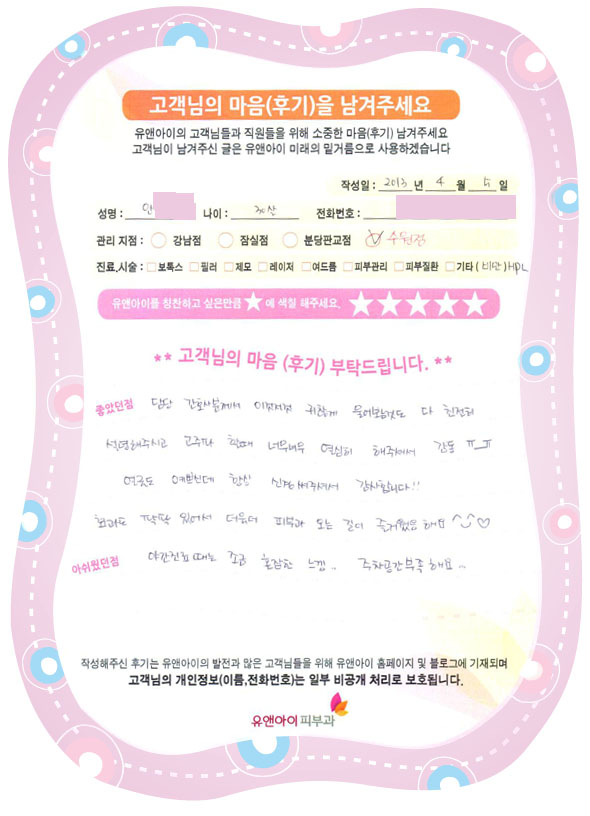 고객님의 마음(후기)을 남겨주세요
유앤아이의 고객님들과 직원들을 위해 소중한 마음(후기) 남겨주세요
고객님이 남겨주신 글은 유앤아이 미래의 밑거름으로 사용하겠습니다
작성일 : 2013 년 4 월 5 일
성명 : 안 나이 : 30살 전화번호 :
관리 지점 : 강남점 잠실점 분당판교점 수원점
진료,시술 : 보톡스 필러 제모 레이저 여드름 피부관리 피부질환 기타 ( 비만 ) HPL
유앤아이를 칭찬하고 싶은만큼 ★ 에 색칠 해주세요. ★★★★★
** 고객님의 마음 (후기) 부탁드립니다. **
좋았던점 담당 간호사님께서 이것저것 귀찮게 물어봤었도 다 친절히
설명해주시고 고주파 할때 너무너무 열심히 해주셔서 감동 ㅠ_ㅠ
얼굴도 예쁘신데 항상 신경써주셔서 감사합니다!!
효과도 팍팍 있어서 더욱더 피부과 오는 길이 즐거웠음 해요 ^^♡
아쉬웠던점 야간진료 때는 조금 혼잡한 느낌.. 주차공간부족 해요..
작성해주신 후기는 유앤아이의 발전과 많은 고객님들을 위해 유앤아이 홈페이지 및 블로그에 기재되며
고객님의 개인정보(이름,전화번호)는 일부 비공개 처리로 보호됩니다.
유앤아이피부과